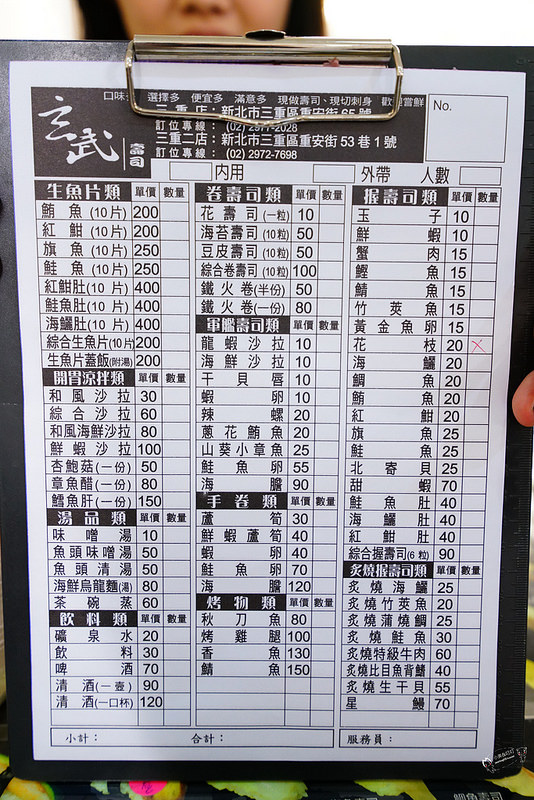 口味 選擇多 便宜多 滿意多 現做壽司、現切刺身 歡迎嘗鮮
玄武 壽司
三重店：新北市三重區重安街65號
訂位專線：(02) 2977-2028
三重二店：新北市三重區重安街53巷1號
訂位專線：(02) 2972-7698
No.
內用 外帶 人數
生魚片類 單價 數量
鮪魚(10片) 200
紅魽(10片) 200
旗魚(10片) 250
鮭魚(10片) 250
紅魽肚(10片) 400
鮭魚肚(10片) 400
海鱺肚(10片) 400
綜合生魚片(10片) 200
生魚片蓋飯(附湯) 200
開胃涼拌類 單價 數量
和風沙拉 30
綜合沙拉 60
和風海鮮沙拉 80
鮮蝦沙拉 100
杏鮑菇(一份) 50
章魚醋(一份) 80
鱈魚肝(一份) 150
湯品類 單價 數量
味噌湯 10
魚頭味噌湯 50
魚頭清湯 50
海鮮烏龍麵(湯) 80
茶碗蒸 60
飲料類 單價 數量
礦泉水 20
飲料 30
啤酒 70
清酒(一壺) 90
清酒(一口杯) 120
卷壽司類 單價 數量
花壽司(一粒) 10
海苔壽司(10粒) 50
豆皮壽司(10粒) 50
綜合卷壽司(10粒) 100
鐵火卷(半份) 50
鐵火卷(一份) 80
軍艦壽司類 單價 數量
龍蝦沙拉 10
海鮮沙拉 10
干貝唇 10
蝦卵 10
辣螺 20
蔥花鮪魚 20
山葵小章魚 25
鮭魚卵 55
海膽 90
手卷類 單價 數量
蘆筍 30
鮮蝦蘆筍 40
蝦卵 40
鮭魚卵 70
海膽 120
烤物類 單價 數量
秋刀魚 80
烤雞腿 100
香魚 130
鯖魚 150
握壽司類 單價 數量
玉子 10
鮮蝦 10
蟹肉 15
鰹魚 15
鯖魚 15
竹莢魚 15
黃金魚卵 15
花枝 20 ×
海鱺 20
鯛魚 20
鮪魚 20
紅魽 20
旗魚 25
鮭魚 25
北寄貝 25
甜蝦 70
鮭魚肚 40
海鱺肚 40
紅魽肚 40
綜合握壽司(6粒) 90
炙燒握壽司類 單價 數量
炙燒海鱺 25
炙燒竹莢魚 20
炙燒蒲燒鯛 25
炙燒鮭魚 30
炙燒特級牛肉 60
炙燒比目魚背鰭 40
炙燒生干貝 55
星鰻 70
小計： 合計： 服務員：